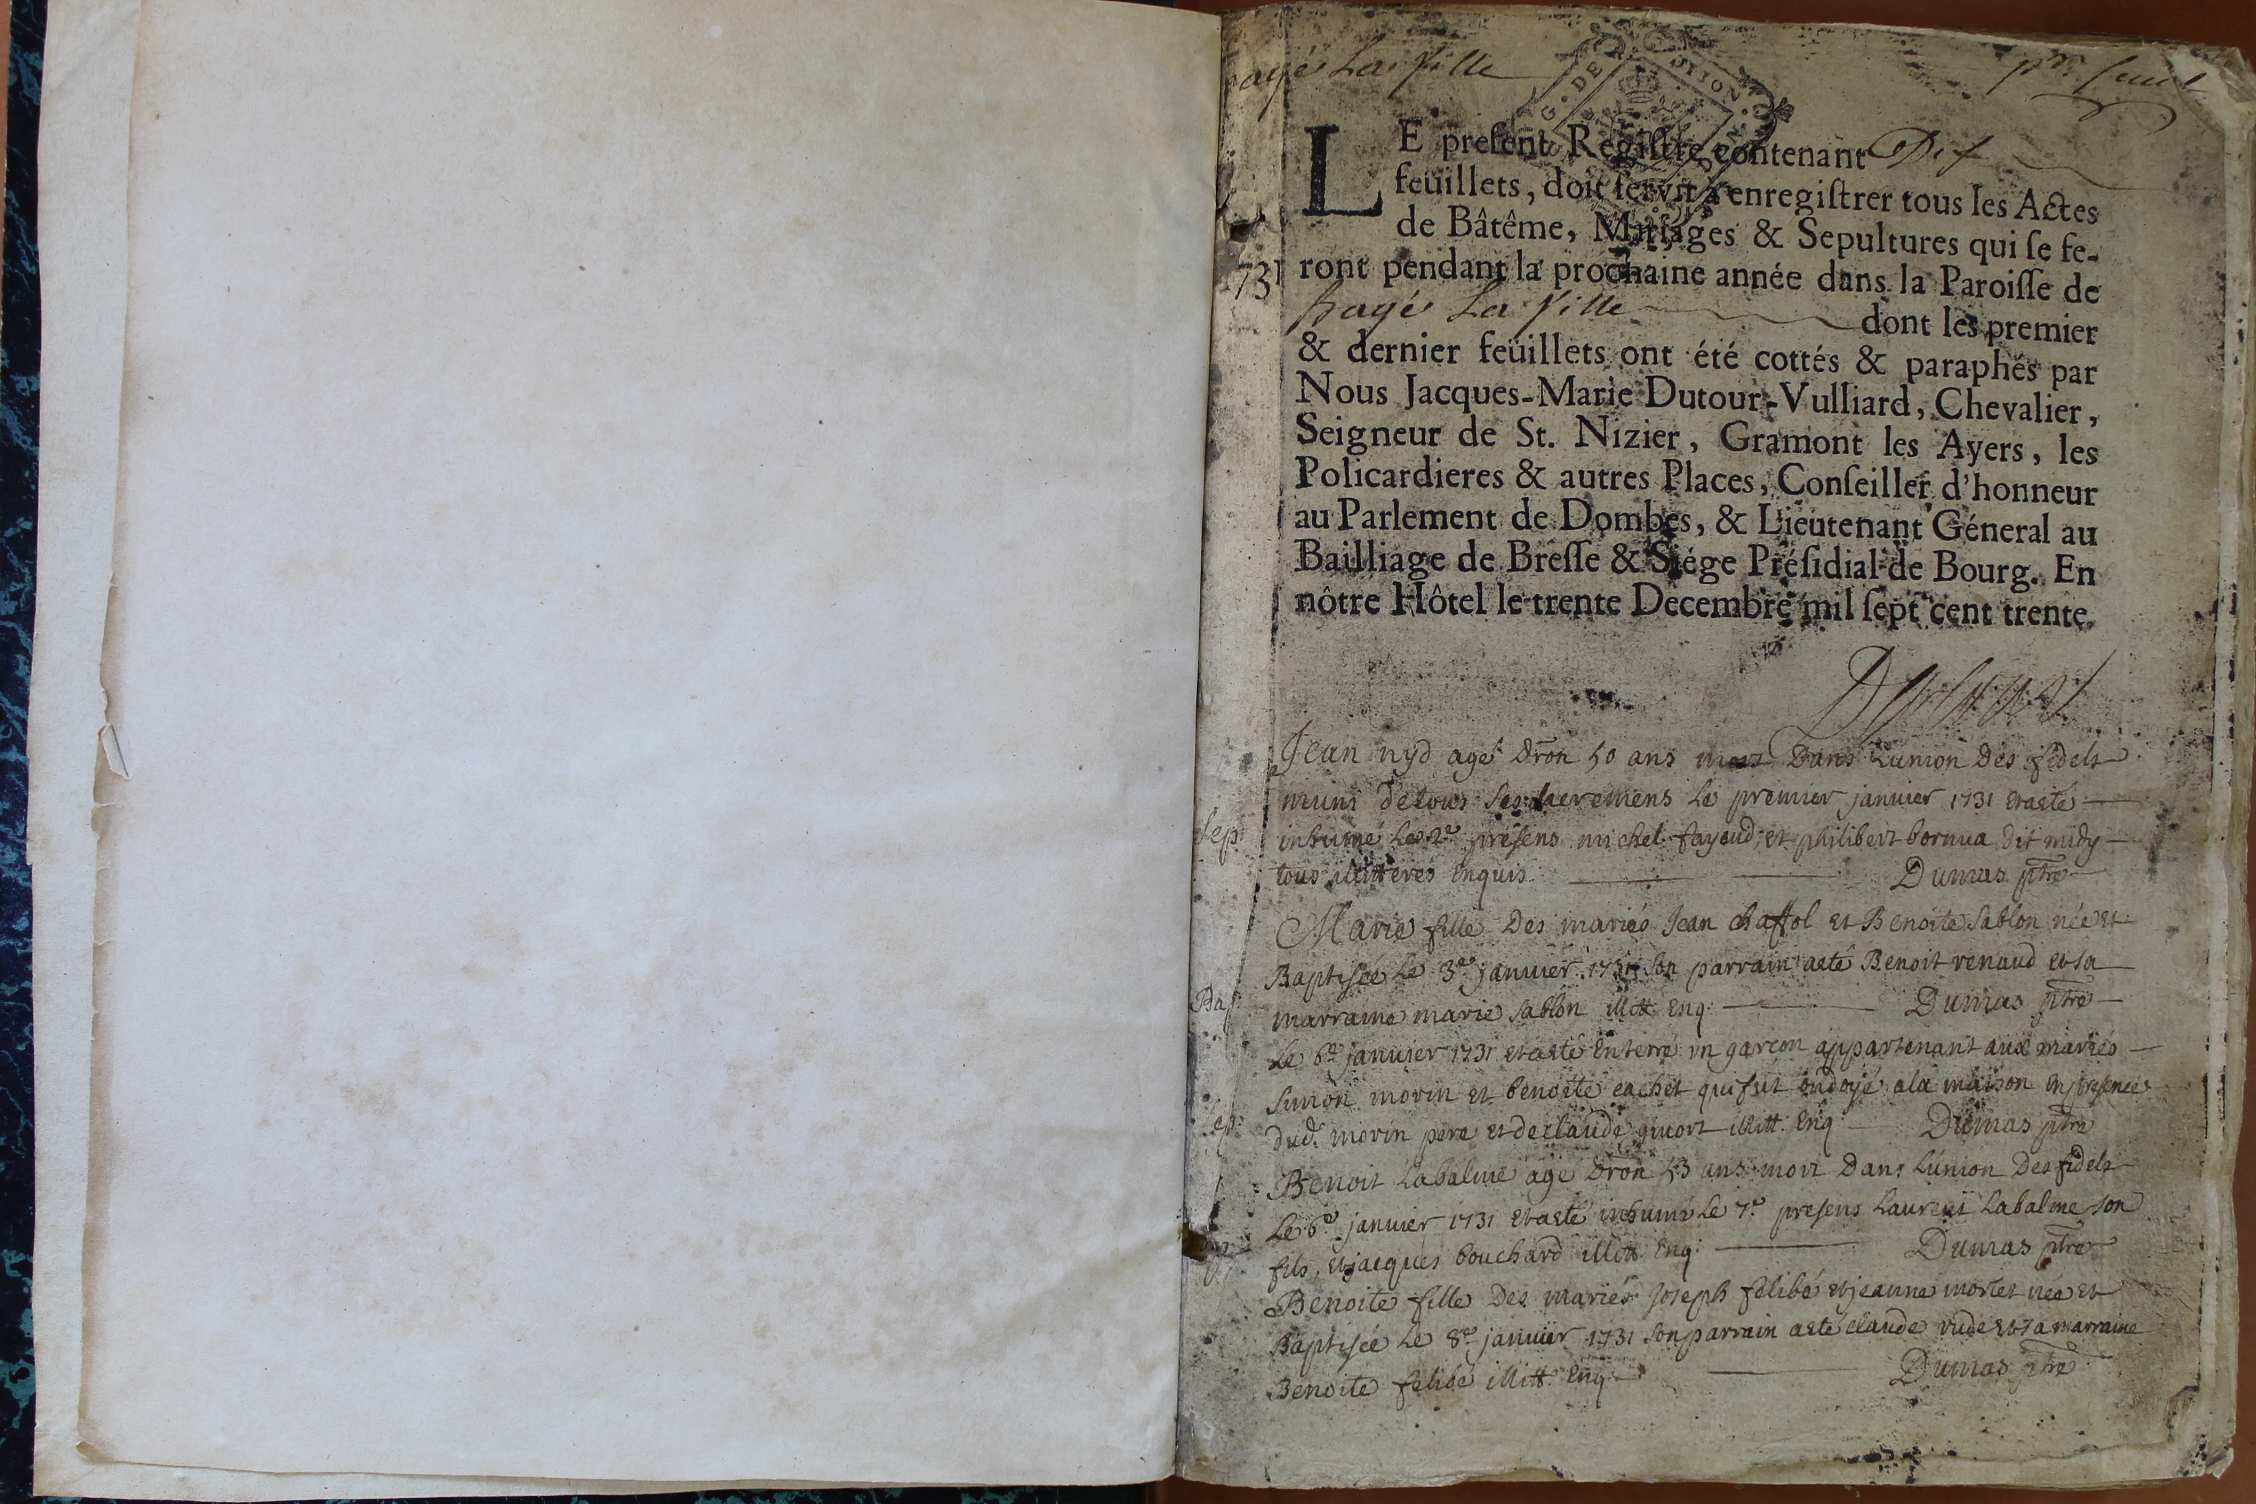 payé La Ville
pr. feuil
LE preſent Regiſtre contenant Dix
feüillets, doit ſervir à enregiſtrer tous les Actes
de Bâtême, Mariages & Sepultures qui ſe fe-
ront pendant la prochaine année dans la Paroiſſe de
731
payé La Ville dont les premier
& dernier feüillets ont été cottés & paraphés par
Nous Jacques-Marie Dutour-Vulliard, Chevalier,
Seigneur de St. Nizier, Gramont les Ayers, les
Policardieres & autres Places, Conſeiller d'honneur
au Parlement de Dombes, & Lieutenant Géneral au
Bailliage de Breſſe & Siége Préſidial de Bourg. En
nôtre Hôtel le trente Decembre mil ſept cent trente.
Jean nyd agé dron 50 ans mort Dans Lunion des fidels
muni detous ses sacremens Le premier janvier 1731 etaeté
Sep:
inhumé Le 2e presens michel fayoud, et philibert bornua dit midy
tous illitteres enquis Dumas ptre
Marie fille Des mariés Jean chaffol et Benoite Sablon née et
Baptisée Le 3e janvier 1731 son parrain aeté Benoit renaud etsa
Bap
marraine marie Sablon illitt enq. Dumas ptre
Le 6e janvier 1731 etaeté enterré un garcon appartenant aux mariés
simon morin et benoite cachet qui fut ondoyé ala maison en presence
ep:
dud. morin pere et declaude guort illitt. enq Dumas ptre
Benoit Labalme agé dron 53 ans mort Dans Lunion Des fidels
Le 6e janvier 1731 etaeté inhumé Le 7e presens Laurent Labalme son
fils, et jacques bouchard illitt enq: Dumas ptre
Benoite fille Des mariés Joseph felibé etjeanne mortet née et
Baptisée Le 8e janvier 1731 sonparrain aeté claude rude etsa marraine
Benoite felibé illitt enq Dumas ptre